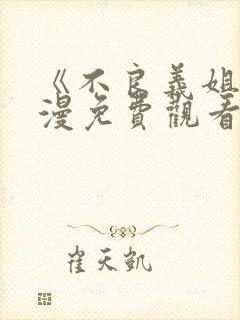 《不良義姐
漫免費觀看
崔天凱